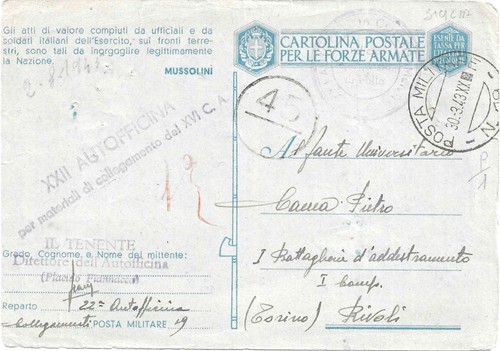 Gli atti di valore compiuti da ufficiali e da
soldati italiani dell'Esercito, sui fronti terre-
stri, sono tali da ingrgoglire legittimamente
la Nazione.
MUSSOLINI
SICILIA
CARTOLINA POSTALE
PER LE FORZE ARMATE
ESENTE DA
TASSA PER
L'ITALIA
POSTA MILITARE
30.3.43.XXI
N-
45
XXII AUTOFFICINA
per materiali di collegamento del XVI C.A.
12
P/1
Al fante Universitario
Cauca Pietro
I Battaglione d'addestramento
I Comp.
(Torino) Rivoli
IL TENENTE
Direttore dell'Autofficina
Grado, Cognome, e Nome del mittente:
Reparto 22ª Autofficina
Collegamenti POSTA MILITARE 19